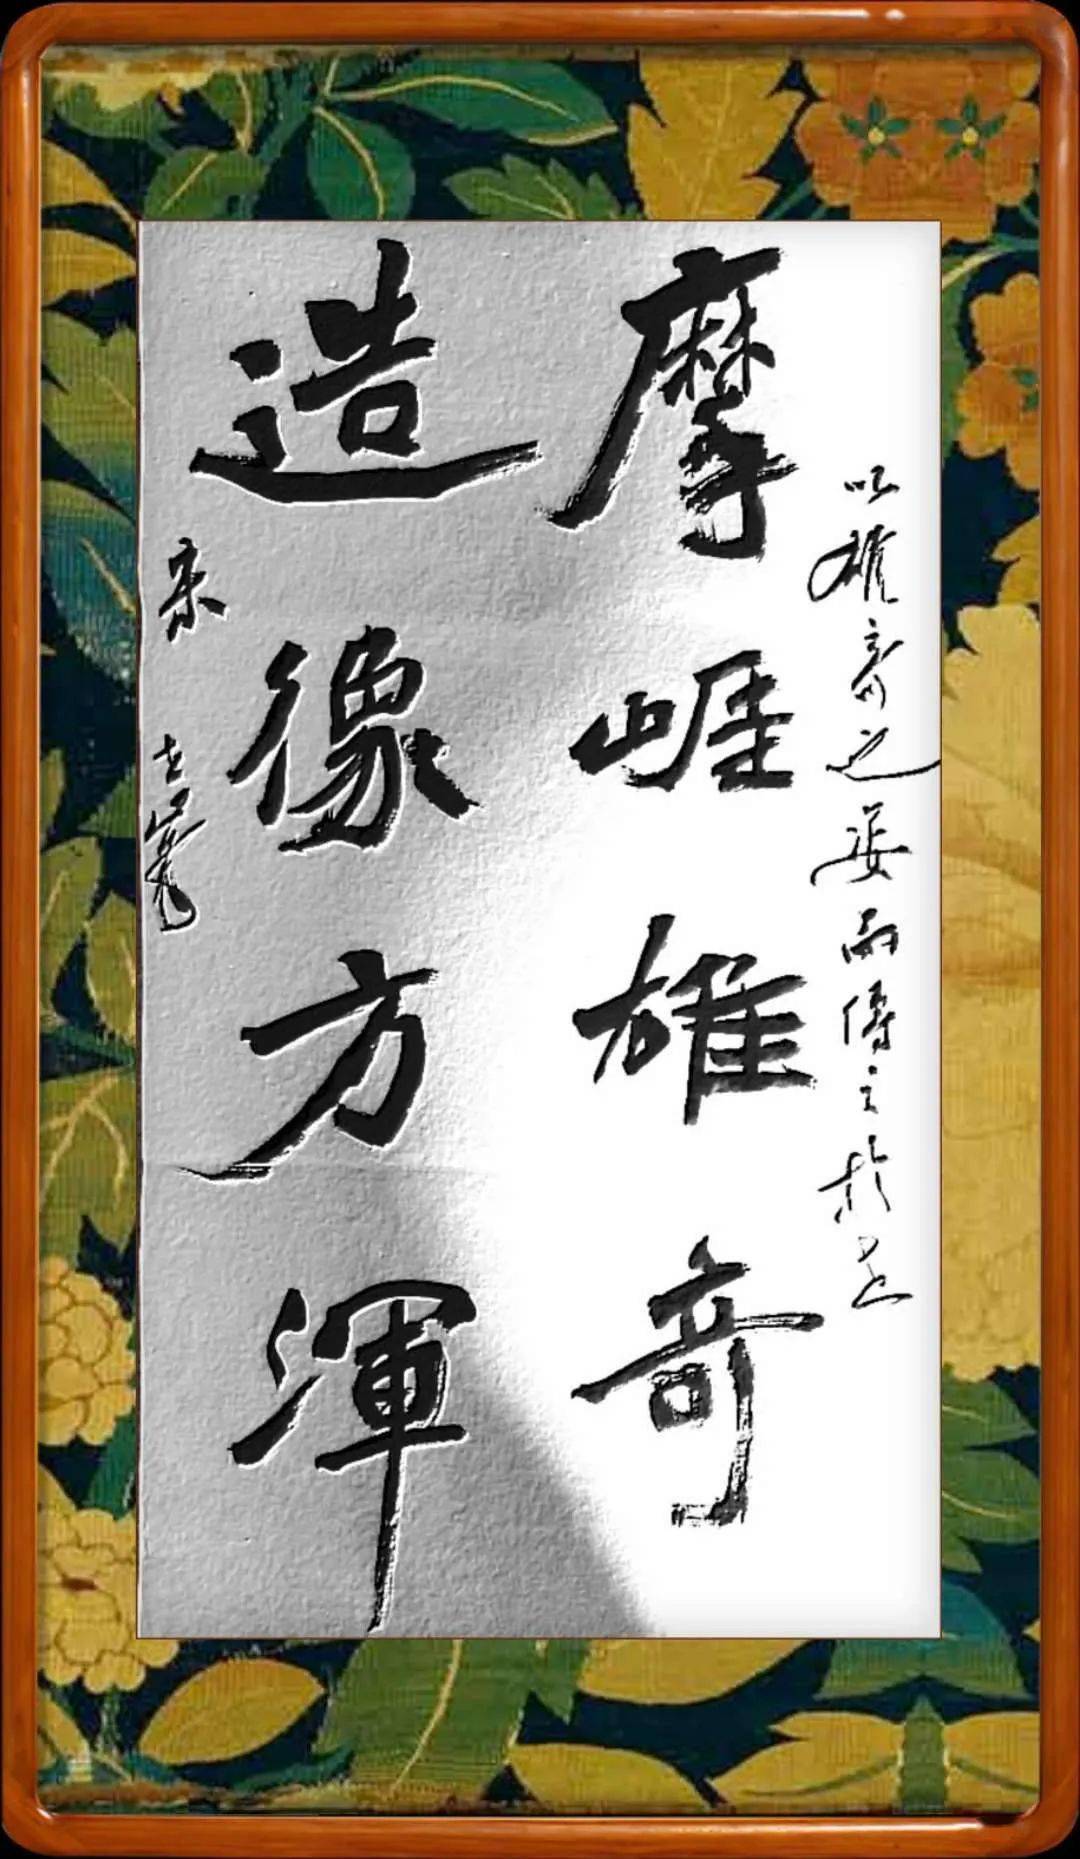 以雄奇之姿而傳之於世
摩崕雄奇
造像方渾
宋